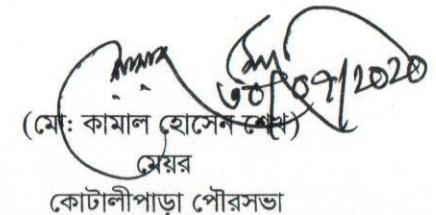 ৩০/০৭/2020
(মো: কামাল হোসেন শেখ)
মেয়র
কোটালীপাড়া পৌরসভা